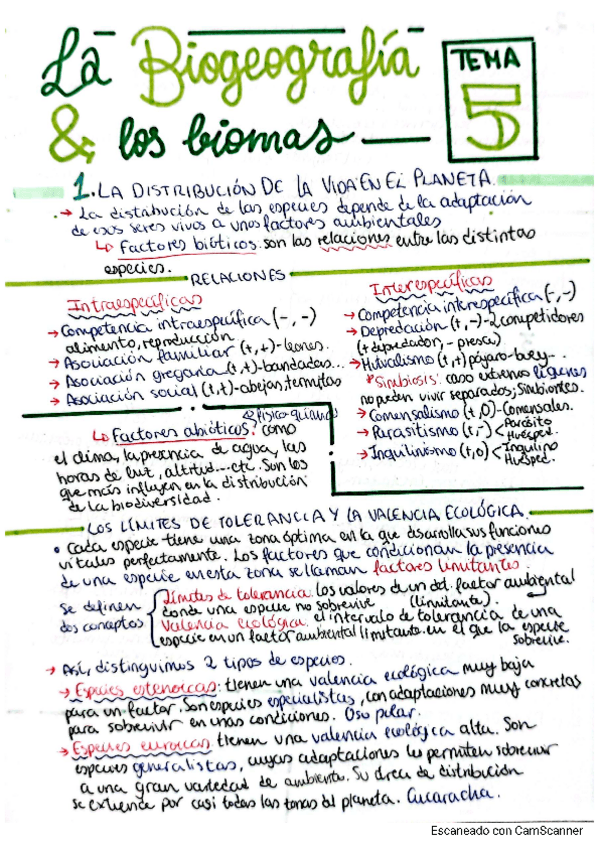 La Biogeografía
& los biomas
TEMA
5
1. LA DISTRIBUCIÓN DE LA VIDA EN EL PLANETA.
→ La distribución de las especies depende de la adaptación
de esos seres vivos a unos factores ambientales
↳ Factores bióticos: son las relaciones entre las distintas
especies.
RELACIONES
Intraespecíficas
→ Competencia intraespecífica (-, -)
alimento, reproducción
→ Asociación familiar (+, +)-leones.
→ Asociación gregaria (+, +)-bandadas...
→ Asociación social (+, +)-abejas, termitas
Interespecíficas
→ Competencia interespecífica (-, -)
→ Depredación (+, -)-2 competidores
(+ depredador, - presa)
→ Mutualismo (+, +) pájaro-buey..
*Simbiosis: caso extremo líquenes
no pueden vivir separados; Simbiontes.
→ Comensalismo (+, 0)-Comensales.
→ Parasitismo (+, -) < Parásito
Huésped.
→ Inquilinismo (+, 0) < Inquilino
Huésped.
físico-químicos
↳ Factores abióticos: como
el clima, la presencia de agua, las
horas de luz, altitud...etc. Son los
que más influyen en la distribución
de la biodiversidad.
LOS LÍMITES DE TOLERANCIA Y LA VALENCIA ECOLÓGICA.
• Cada especie tiene una zona óptima en la que desarrolla sus funciones
vitales perfectamente. Los factores que condicionan la presencia
de una especie en esta zona se llaman factores limitantes.
Se definen
dos conceptos
Límites de tolerancia: los valores de un det. factor ambiental
donde una especie no sobrevive (limitante).
Valencia ecológica: el intervalo de tolerancia de una
especie en un factor ambiental limitante en el que la especie
sobrevive.
→ Así, distinguimos 2 tipos de especies.
→ Especies estenoicas: tienen una valencia ecológica muy baja
para un factor. Son especies especialistas, con adaptaciones muy concretas
para sobrevivir en unas condiciones. Oso polar.
→ Especies eurioicas: tienen una valencia ecológica alta. Son
especies generalistas, cuyas adaptaciones les permiten sobrevivir
a una gran variedad de ambientes. Su área de distribución
se extiende por casi todas las zonas del planeta. Cucaracha.
Escaneado con CamScanner